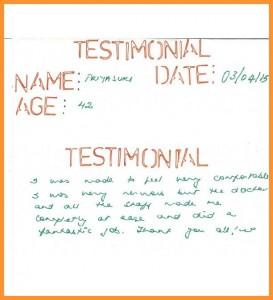 TESTIMONIAL
NAME: PRIYASURI DATE: 03/04/15
AGE: 42
TESTIMONIAL
I was made to feel very comfortable
I was very nervous but the doctor
and all the staff made me
completly at ease and did a
fantastic job. Thank you all!